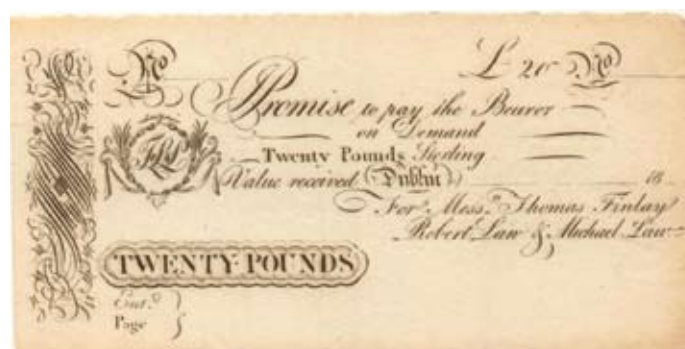 No £ 20 No
I Promise to pay the Bearer
on Demand
Twenty Pounds Sterling
Value received Dublin 18
For Mess.rs Thomas Finlay
Robert Law & Michael Law
TWENTY POUNDS
Ent.d
Page